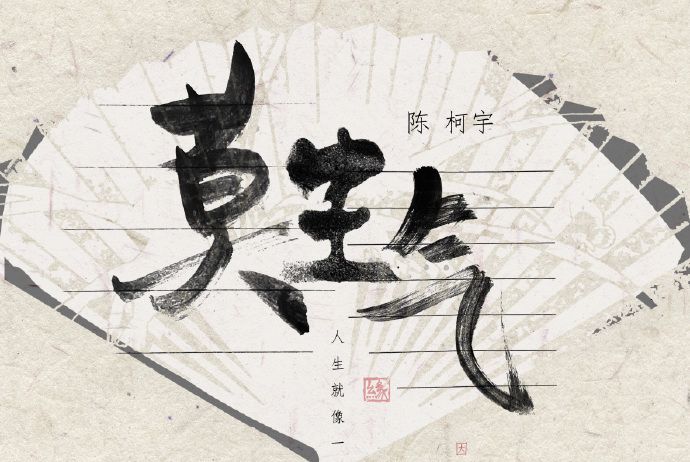 莫生气
陈 柯宇
人生就像一
緣
因